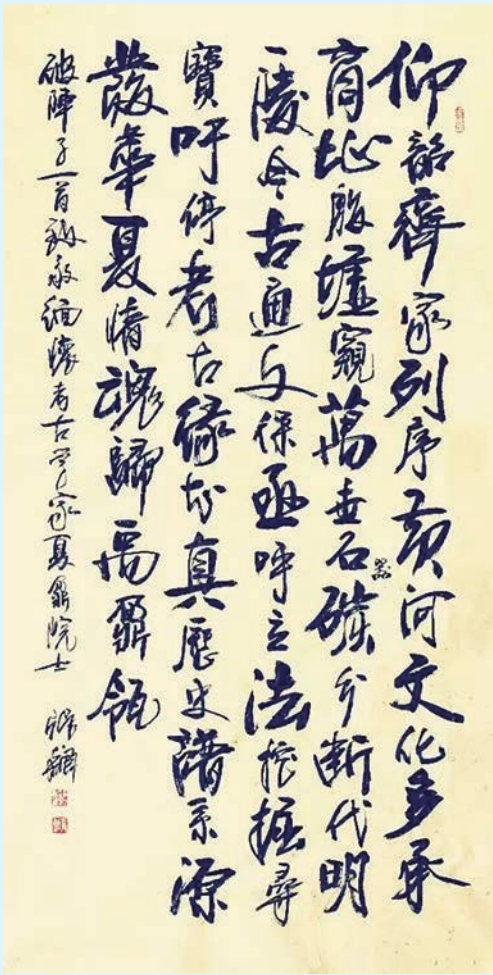 仰韶齊家列序黃河文化多承
商址殷墟窺萬世石器碳分断代明
一陵今古通文保亟呼立法挖掘尋
寶吁停考古緣於真歷史譜系源
發華夏情魂歸禹鼐瓴
破陣子一首致敬緬懷考古學家夏鼐院士